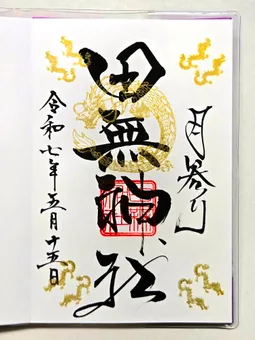 月参り
田無神社
令和七年五月十五日